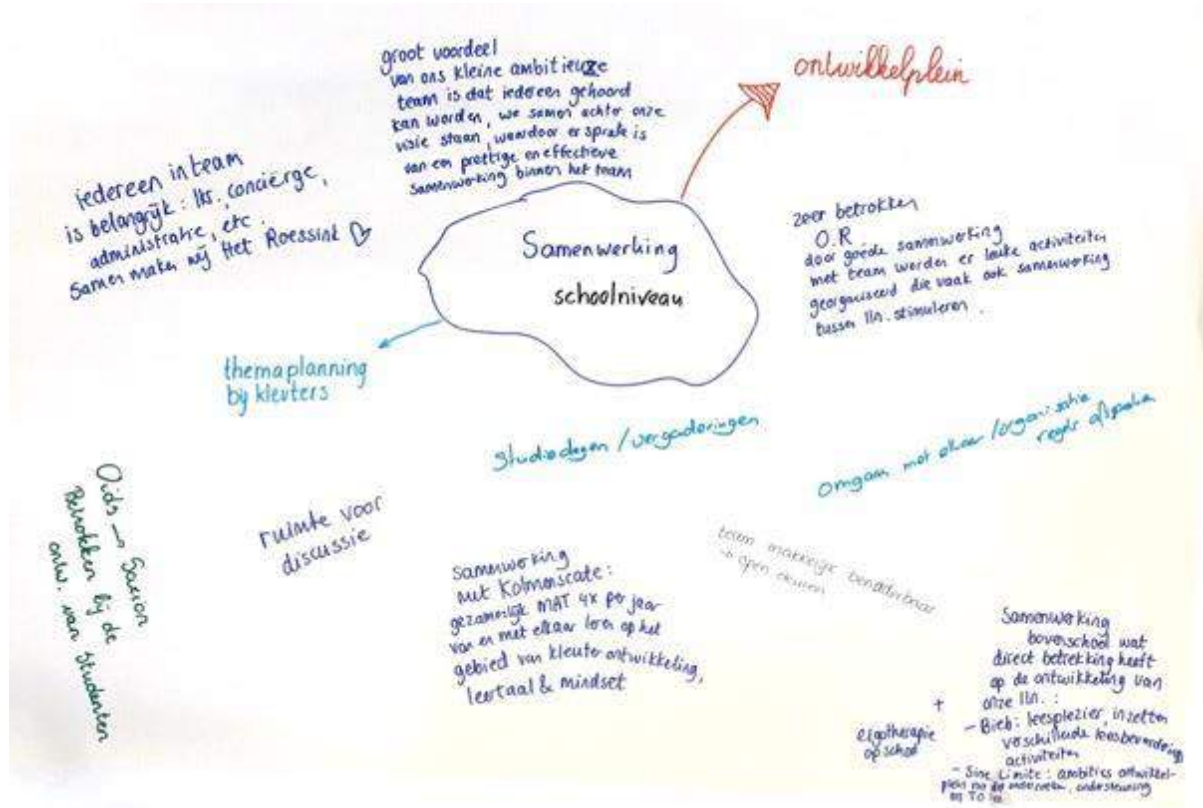 groot voordeel
van ons kleine ambitieuze
team is dat iedereen gehoord
kan worden, we samen achter onze
visie staan, waardoor er sprake is
van een prettige en effectieve
samenwerking binnen het team
ontwikkelplein
iedereen in team
is belangrijk: lks, conciërge,
administratie, etc.
Samen maken wij Het Roessink
Samenwerking
schoolniveau
zeer betrokken
O.R
door goede samenwerking
met team worden er leuke activiteiten
georganiseerd die vaak ook samenwerking
tussen lln. stimuleren.
themaplanning
bij kleuters
studiedagen / vergaderingen
Omgaan met elkaar / organisatie
regels afspraken
Oids → Saxion
Betrokken bij de
ontw. van studenten
ruimte voor
discussie
samenwerking
met Kolmenscate:
gezamenlijk MAT 4x per jaar
van en met elkaar leren op het
gebied van kleuterontwikkeling,
leertaal & mindset
team makkelijk benaderbaar
→ open deuren
Samenwerking
bovenschool wat
direct betrekking heeft
op de ontwikkeling van
onze lln.:
- Bieb: leesplezier, inzetten
verschillende leesbevorderings
activiteiten
- Sine Limite: ambities ontwikkel-
plein ondersteuning
+
ergotherapie
op school